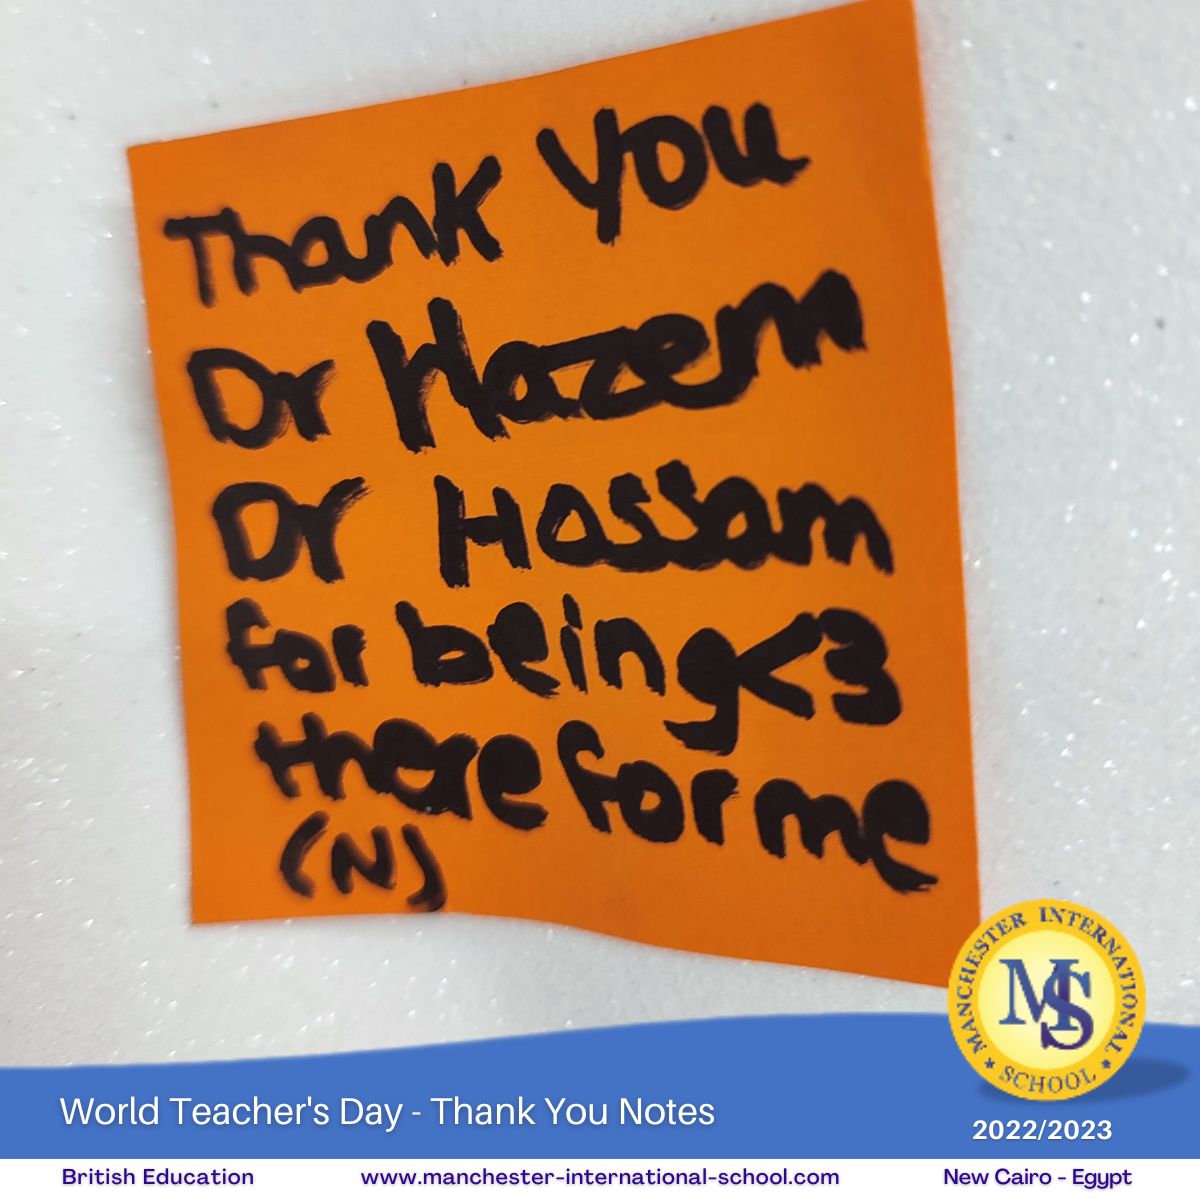 Thank You
Dr Hazem
Dr Hossam
for being <3
there for me
(N)
MANCHESTER INTERNATIONAL SCHOOL
MIS
World Teacher's Day - Thank You Notes
2022/2023
British Education
www.manchester-international-school.com
New Cairo - Egypt